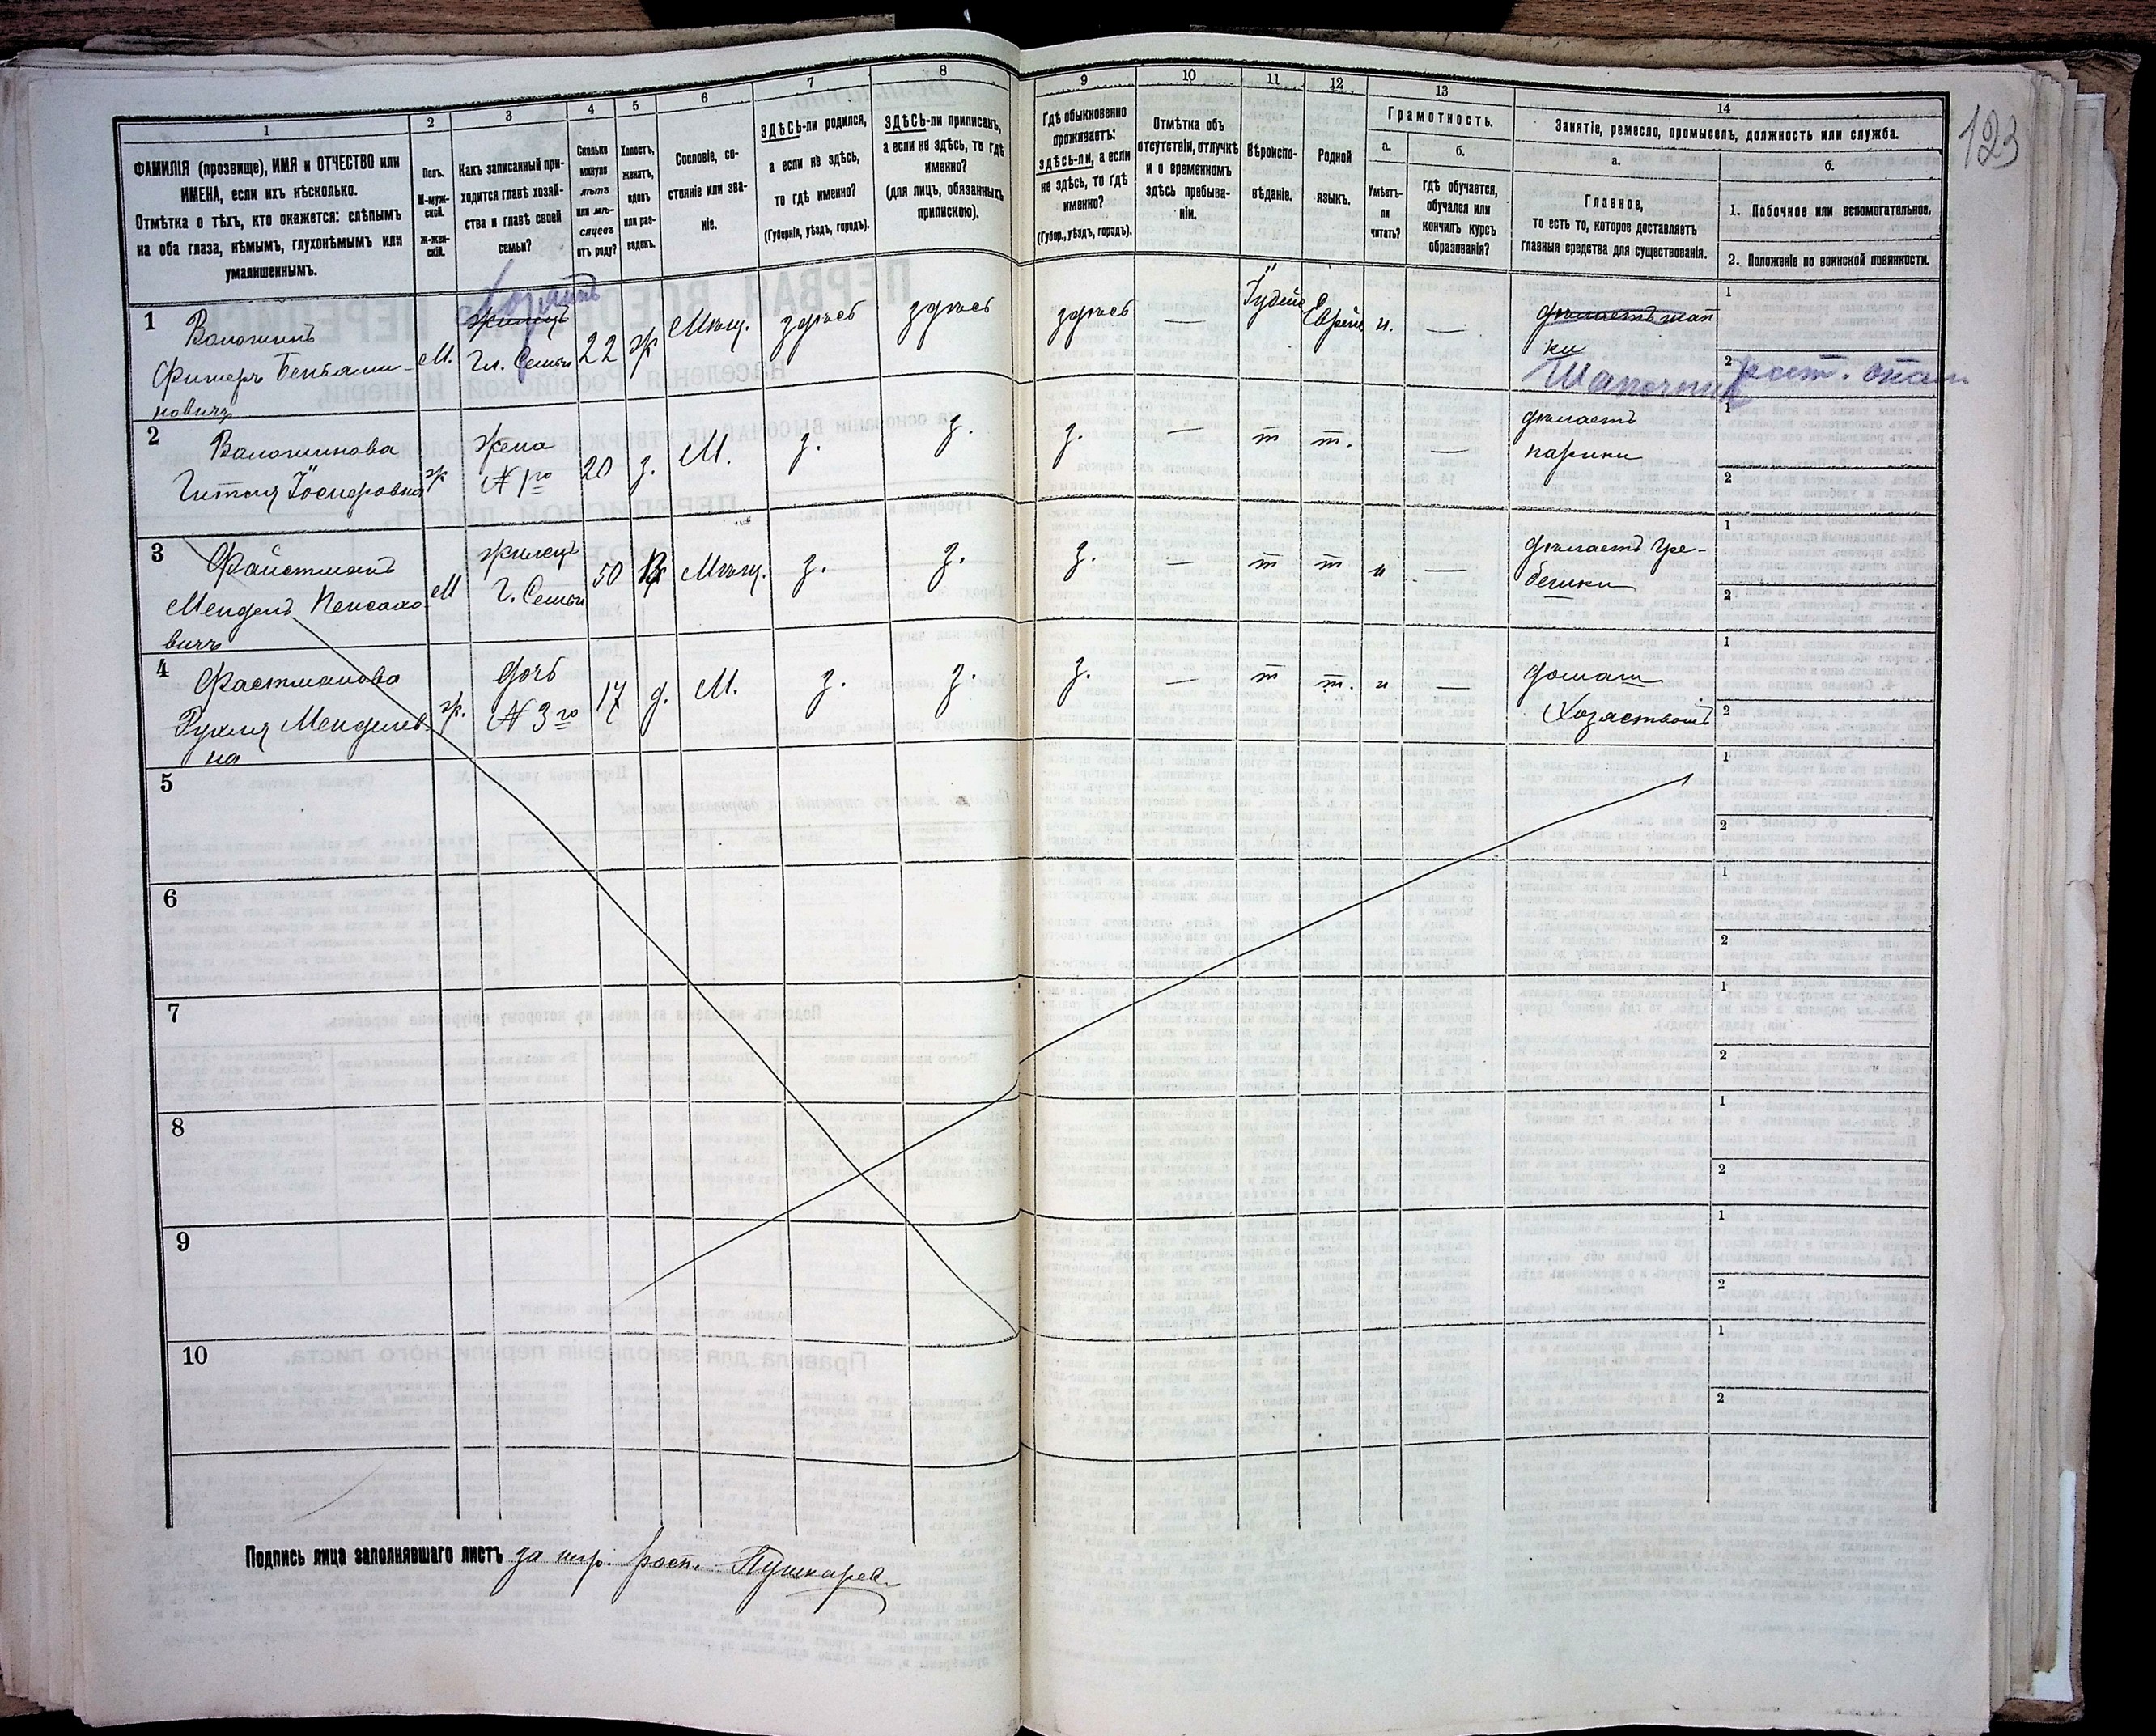 1 2 3 4 5 6 7 8 9 10 11 12 13 14
123
ФАМИЛІЯ (прозвище), ИМЯ и ОТЧЕСТВО или
ИМЕНА, если ихъ нѣсколько.
Отмѣтка о тѣхъ, кто окажется: слѣпымъ
на оба глаза, нѣмымъ, глухонѣмымъ или
умалишеннымъ.
Полъ.
М-муж-
ской.
ж-жен-
скій.
Какъ записанный при-
ходится главѣ хозяй-
ства и главѣ своей
семьи?
Сколько
минуло
лѣтъ
или мѣ-
сяцевъ
отъ роду?
Холостъ,
женатъ,
вдовъ
или раз-
веденъ.
Сословіе, со-
стояніе или зва-
ніе.
ЗДѢСЬ-ли родился,
а если не здѣсь,
то гдѣ именно?
(Губернія, уѣздъ, городъ).
ЗДѢСЬ-ли приписанъ,
а если не здѣсь, то гдѣ
именно?
(для лицъ, обязанныхъ
припискою).
Гдѣ обыкновенно
проживаетъ:
здѣсь-ли, а если
не здѣсь, то гдѣ
именно?
(Губер., уѣздъ, городъ).
Отмѣтка объ
отсутствіи, отлучкѣ
и о временномъ
здѣсь пребыва-
ніи.
Вѣроиспо-
вѣданіе.
Родной
языкъ.
Грамотность.
а.
Умѣетъ-
ли
читать?
б.
Гдѣ обучается,
обучался или
кончилъ курсъ
образованія?
Занятіе, ремесло, промыселъ, должность или служба.
а.
Главное,
то есть то, которое доставляетъ
главныя средства для существованія.
б.
1. Побочное или вспомогательное.
2. Положеніе по воинской повинности.
1
Воложинъ
Фишеръ Беньями-
новичъ
М.
Хозяинъ
жилецъ
Гл. Семьи
22
ж
Мѣщ.
здѣсь
здѣсь
здѣсь
—
Іудейс
Еврейс
и.
—
дѣлаетъ шап
ки
Шапочник
1
2
2
Воложинова
Гитля Іосифовна
ж
жена
№ 1го
20
з.
М.
з.
з.
з.
—
т
т.
—
дѣлаетъ
парики
1
2
3
Файстманъ
Мендель Пейсахо-
вичъ
М
жилецъ
Г. Семьи
50
В
Мѣщ.
з.
з.
з.
—
т
т
и
—
дѣлаетъ Гре-
бешки
1
2
4
Фастманова
Рухля Менделев-
на
ж.
дочь
№ 3го
17
д.
М.
з.
з.
з.
—
т
т.
и
—
домаш
Хозяствомъ
1
2
5
1
2
6
1
2
7
1
2
8
1
2
9
1
2
10
1
2
Подпись лица заполнявшаго листъ за негр. росп. Пушкарев